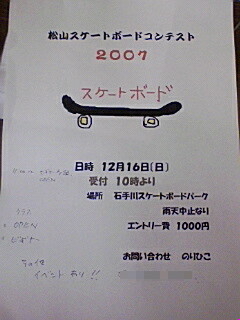 松山スケートボードコンテスト
2007
スケートボード
日時 12月16日(日)
受付 10時より
場所 石手川スケートボードパーク
雨天中止なり
エントリー費 1000円
クラス
・OPEN
・ビギナー
お問い合わせ のりひこ
その他
イベントあり!!